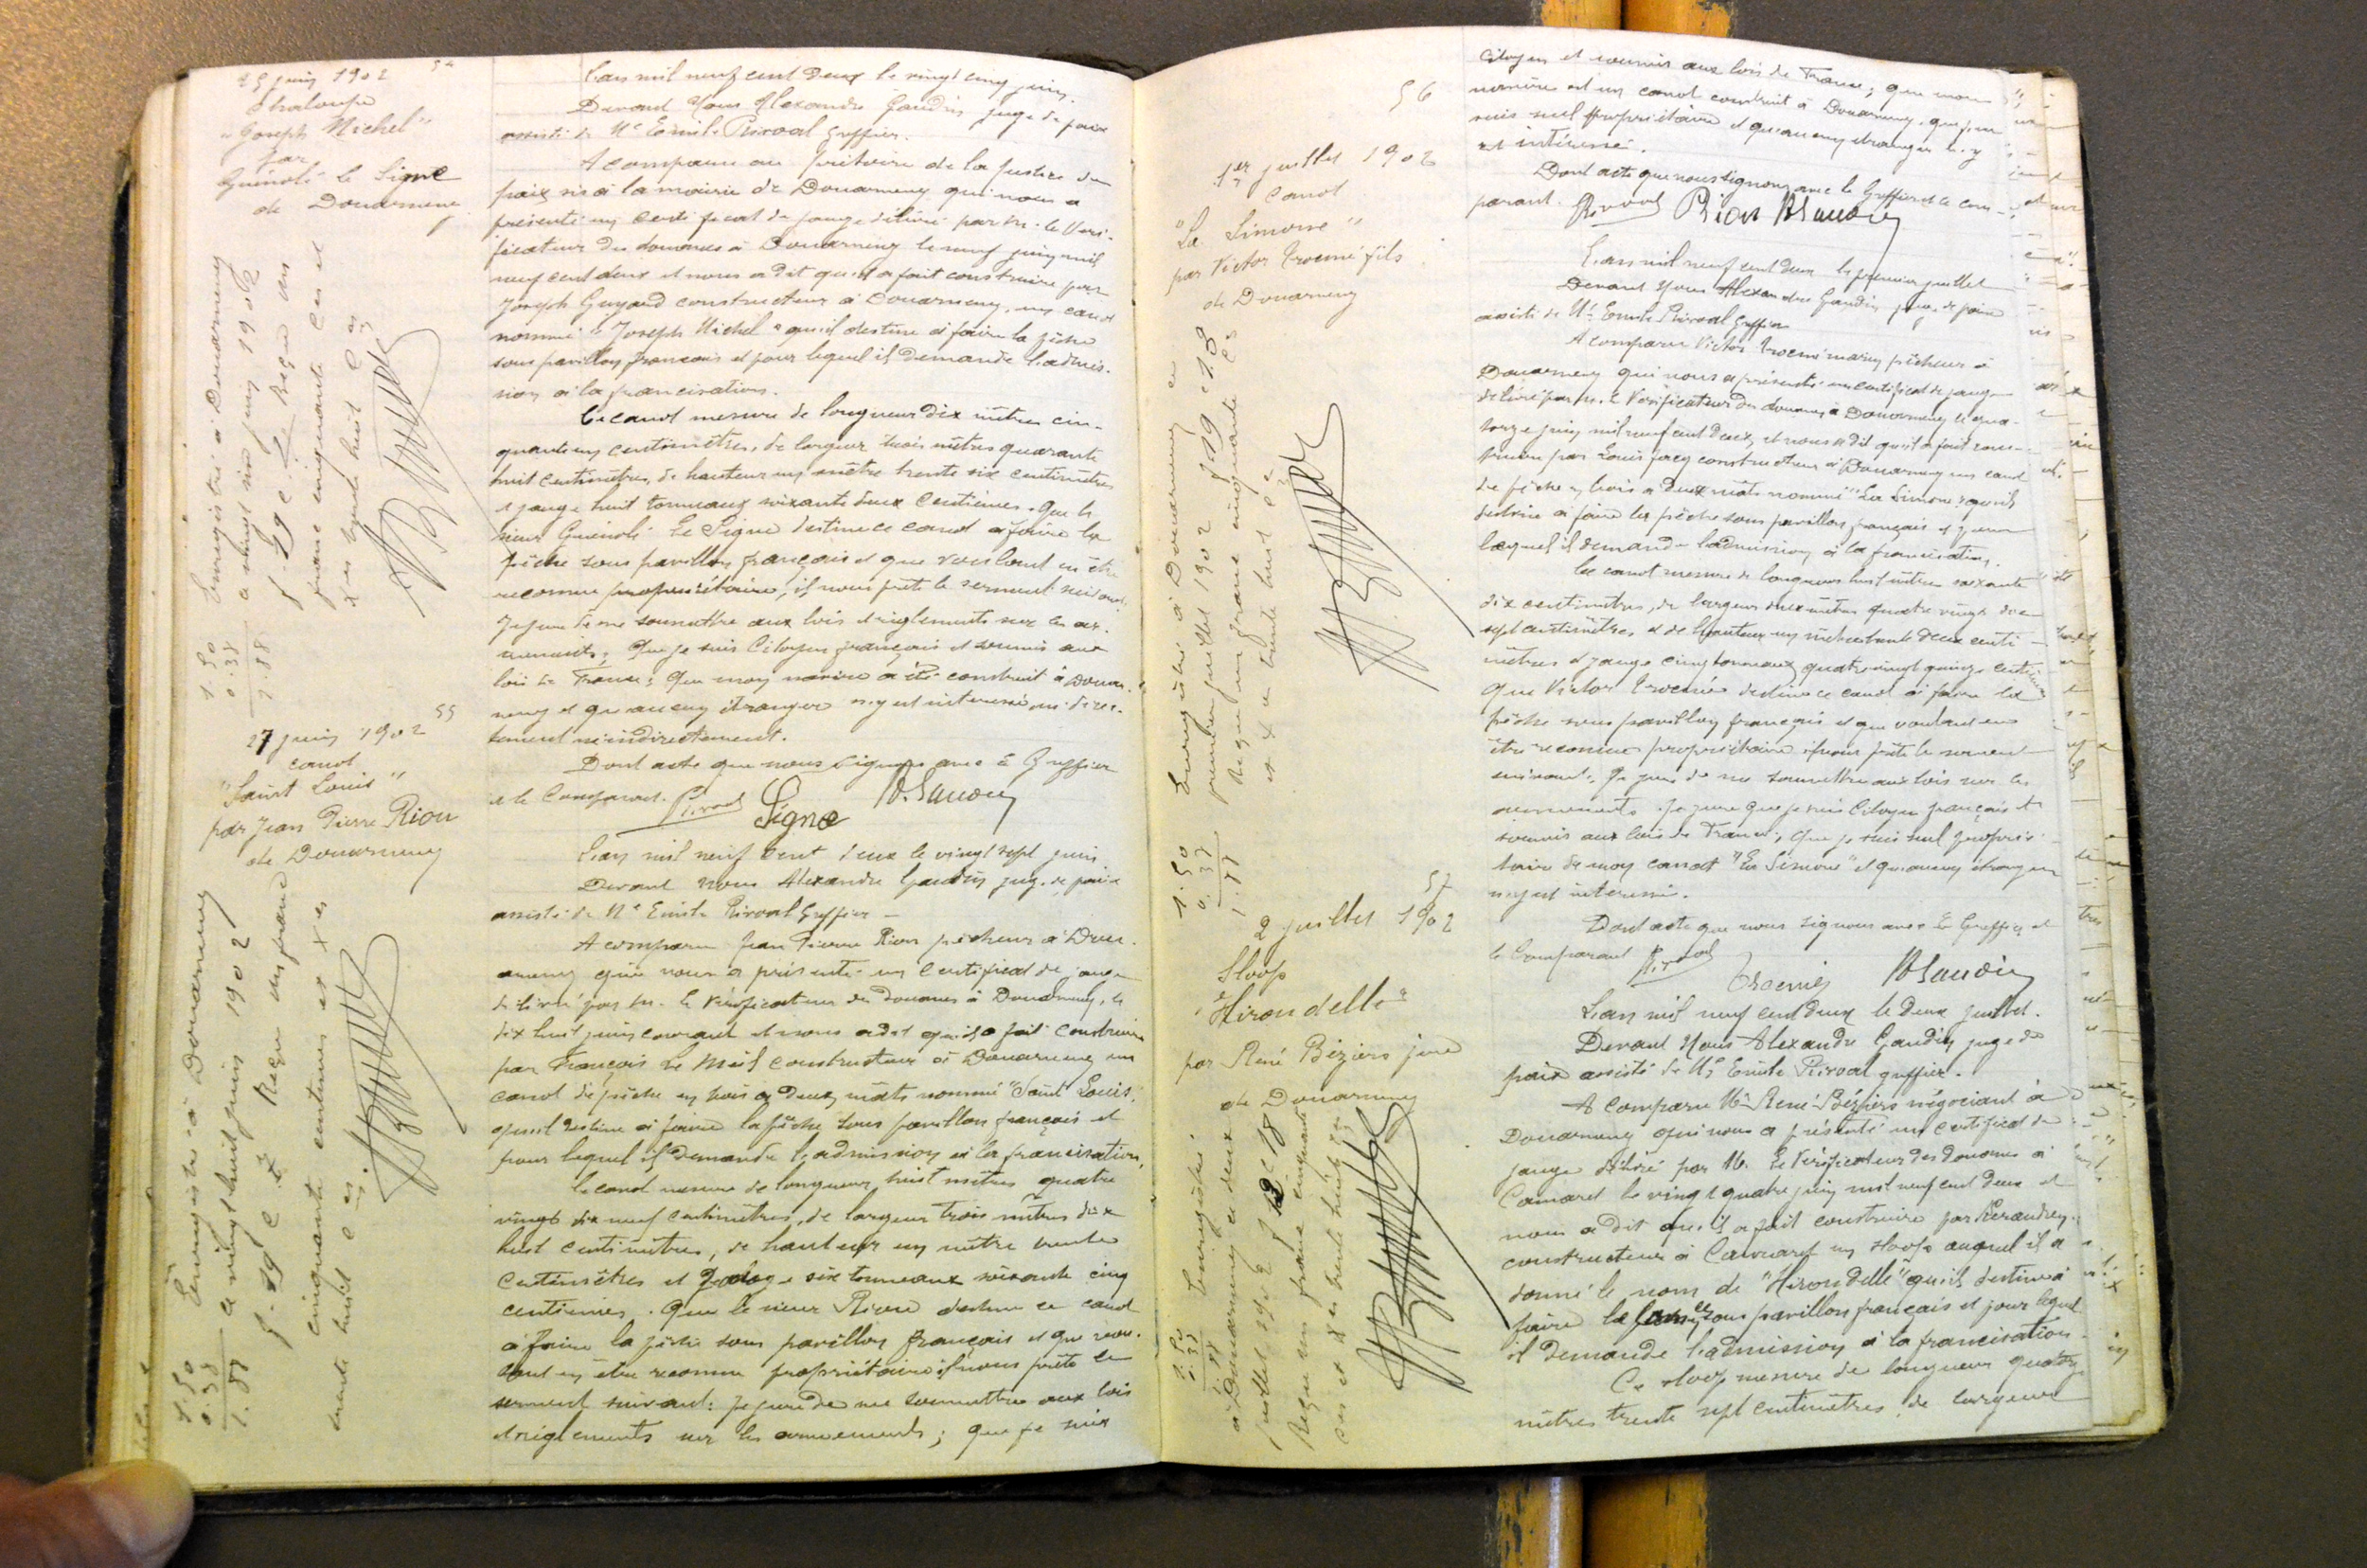 25 juin 1902 54
Chaloupe
"Joseph Michel"
par
Guénolé le Signe
de Douarnenez
Enregistré à Douarnenez
a vingt six juin 1902
f. 29 c. Reçu un
franc cinquante ces et
x es trente huit ces
1.50
0.38
1.88
L'an mil neuf cent deux le vingt cinq juin.
Devant Nous Alexandre Gaudin juge de paix
assisté de Me Emile Pirval greffier.
A comparu au prétoire de la Justice de
paix sis à la mairie de Douarnenez qui nous a
présenté un certificat de jauge délivré par M. le Véri-
ficateur des douanes à Douarnenez le neuf juin mil
neuf cent deux et nous a dit qu'il a fait construire par
Joseph Guyard constructeur à Douarnenez, un canot
nommé "Joseph Michel" qu'il destine à faire la pêche
sous pavillon français et pour lequel il demande l'admis-
sion à la francisation.
Ce canot mesure de longueur dix mètres cin-
quante un centimètres, de largeur trois mètres quarante
huit centimètres, de hauteur un mètre trente six centimètres
et jauge huit tonneaux soixante deux centièmes. Que le
sieur Guénolé Le Signe destine ce canot à faire la
pêche sous pavillon français et que voulant en être
reconnu propriétaire, il nous prête le serment suivant:
Je jure de me soumettre aux lois et règlements sur les ar-
mements; Que je suis Citoyen français et soumis aux
lois de France; Que mon navire a été construit à Douar-
nenez et qu'aucun étranger n'y est intéressé ni direc-
tement ni indirectement.
Dont acte que nous signons avec le Greffier
et le Comparant. Pirval Signe A. Gaudin
27 juin 1902 55
canot
"Saint Louis"
par Jean Pierre Riou
de Douarnenez
Enregistré à Douarnenez
a vingt huit juin 1902
f. 29 c. Reçu un franc
cinquante centimes et x es
trente huit ces
1.50
0.38
1.88
L'an mil neuf cent deux le vingt sept juin
Devant nous Alexandre Gaudin juge de paix
assisté de Me Emile Pirval Greffier —
A comparu Jean Pierre Riou pêcheur à Douar-
nenez qui nous a présenté un certificat de jauge
délivré par M. le Vérificateur des douanes à Douarnenez, le
dix huit juin courant et nous a dit qu'il a fait construire
par François Le Meil constructeur à Douarnenez un
canot de pêche en bois à deux mâts nommé "Saint Louis",
qu'il destine à faire la pêche sous pavillon français et
pour lequel il demande l'admission à la francisation.
Le canot mesure de longueur huit mètres quatre
vingt dix neuf centimètres, de largeur trois mètres dix
huit centimètres, de hauteur un mètre trente
centimètres et jauge six tonneaux soixante cinq
centièmes. Que le sieur Riou destine ce canot
à faire la pêche sous pavillon français et que vou-
lant en être reconnu propriétaire il nous prête le
serment suivant: Je jure de me soumettre aux lois
et règlements sur les armements; que je suis
citoyen et soumis aux lois de France; que mon
navire est un canot construit à Douarnenez, que j'en
suis seul propriétaire et qu'aucun étranger n'y
est intéressé.
Dont acte que nous signons avec le Greffier et le com-
parant. Pirval Riou A Gaudin
56
1er juillet 1902
canot
"La Simone"
par Victor Trocmé fils
de Douarnenez
Enregistré à Douarnenez ce
premier juillet 1902 f 19 c 18
Reçu un franc cinquante ces
et x es trente huit ces
1.50
0.38
1.88
L'an mil neuf cent deux le premier juillet
Devant Nous Alexandre Gaudin juge de paix
assisté de Me Emile Pirval Greffier
A comparu Victor Trocmé marin pêcheur à
Douarnenez qui nous a présenté un certificat de jauge
délivré par M. le Vérificateur des douanes à Douarnenez le qua-
torze juin mil neuf cent deux, et nous a dit qu'il a fait cons-
truire par Louis Jacq constructeur à Douarnenez un canot
de pêche en bois à deux mâts nommé "La Simone" qu'il
destine à faire la pêche sous pavillon français et pour
lequel il demande l'admission à la francisation.
Ce canot mesure de longueur huit mètres soixante
dix centimètres, de largeur deux mètres quatre vingt dix
sept centimètres et de hauteur un mètre trente deux centi-
mètres et jauge cinq tonneaux quatre vingt quinze centièmes
Que Victor Trocmé destine ce canot à faire la
pêche sous pavillon français et que voulant en
être reconnu propriétaire il nous prête le serment
suivant: Je jure de me soumettre aux lois sur les
armements. Je jure que je suis Citoyen français et
soumis aux lois de France; Que je suis seul proprié-
taire de mon canot "La Simone" et qu'aucun étranger
n'y est intéressé.
Dont acte que nous signons avec le Greffier et
le Comparant Pirval
Trocmé A Gaudin
57
2 juillet 1902
Sloop
"Hirondelle"
par René Béziers jeune
de Douarnenez
Enregistré
à Douarnenez ce deux
juillet 1902 f c 18
Reçu un franc cinquante
ces et x es trente huit ces
1.50
0.38
1.88
L'an mil neuf cent deux le deux juillet.
Devant Nous Alexandre Gaudin juge de
paix assisté de Me Emile Pirval greffier.
A Comparu Mr René Béziers négociant à
Douarnenez qui nous a présenté un certificat de
jauge délivré par M. Le Vérificateur des douanes à
Camaret le vingt quatre juin mil neuf cent deux et
nous a dit qu'il a fait construire par Keraudren
constructeur à Camaret un sloop auquel il a
donné le nom de "Hirondelle" qu'il destine à
faire sous pavillon français et pour lequel
il demande l'admission à la francisation.
Ce sloop mesure de longueur quatorze
mètres trente sept centimètres, de largeur